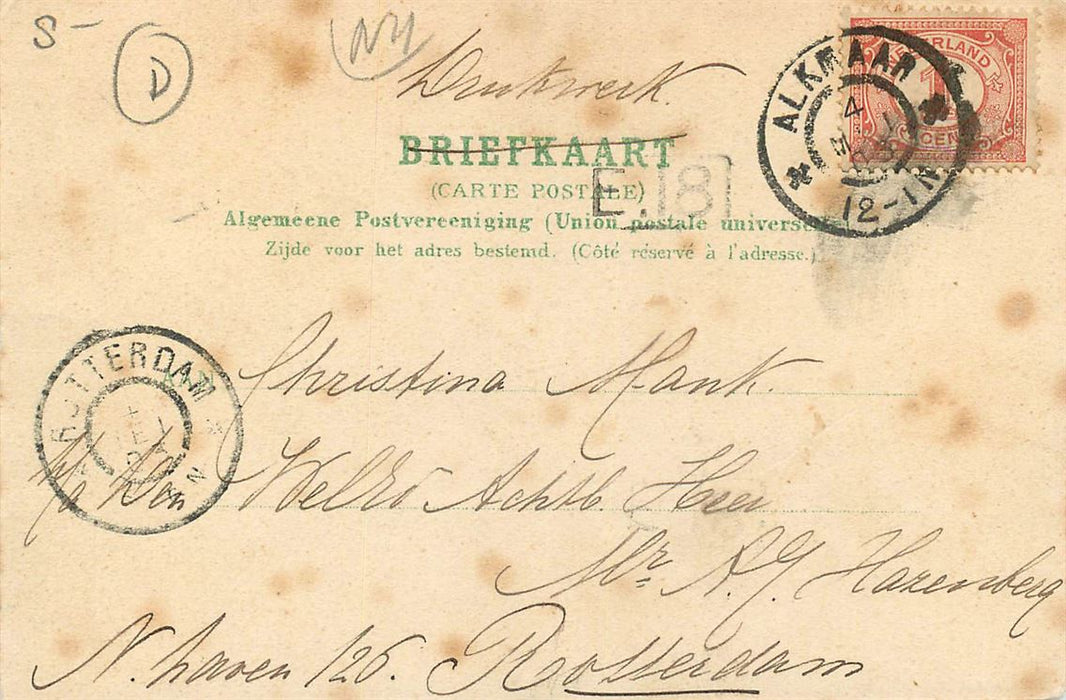 S- D NY
Drukwerk.
BRIEFKAART
(CARTE POSTALE)
E. 8
Algemeene Postvereeniging (Union postale universelle)
Zijde voor het adres bestemd. (Côté réservé à l'adresse.)
NEDERLAND
1
CENT
ALKMAAR
4
12-1N
ROTTERDAM
Christina Mank.
p/a den WelEd Achtb. Heer
Mr. A.J. Harenberg
N. haven 126. Rotterdam